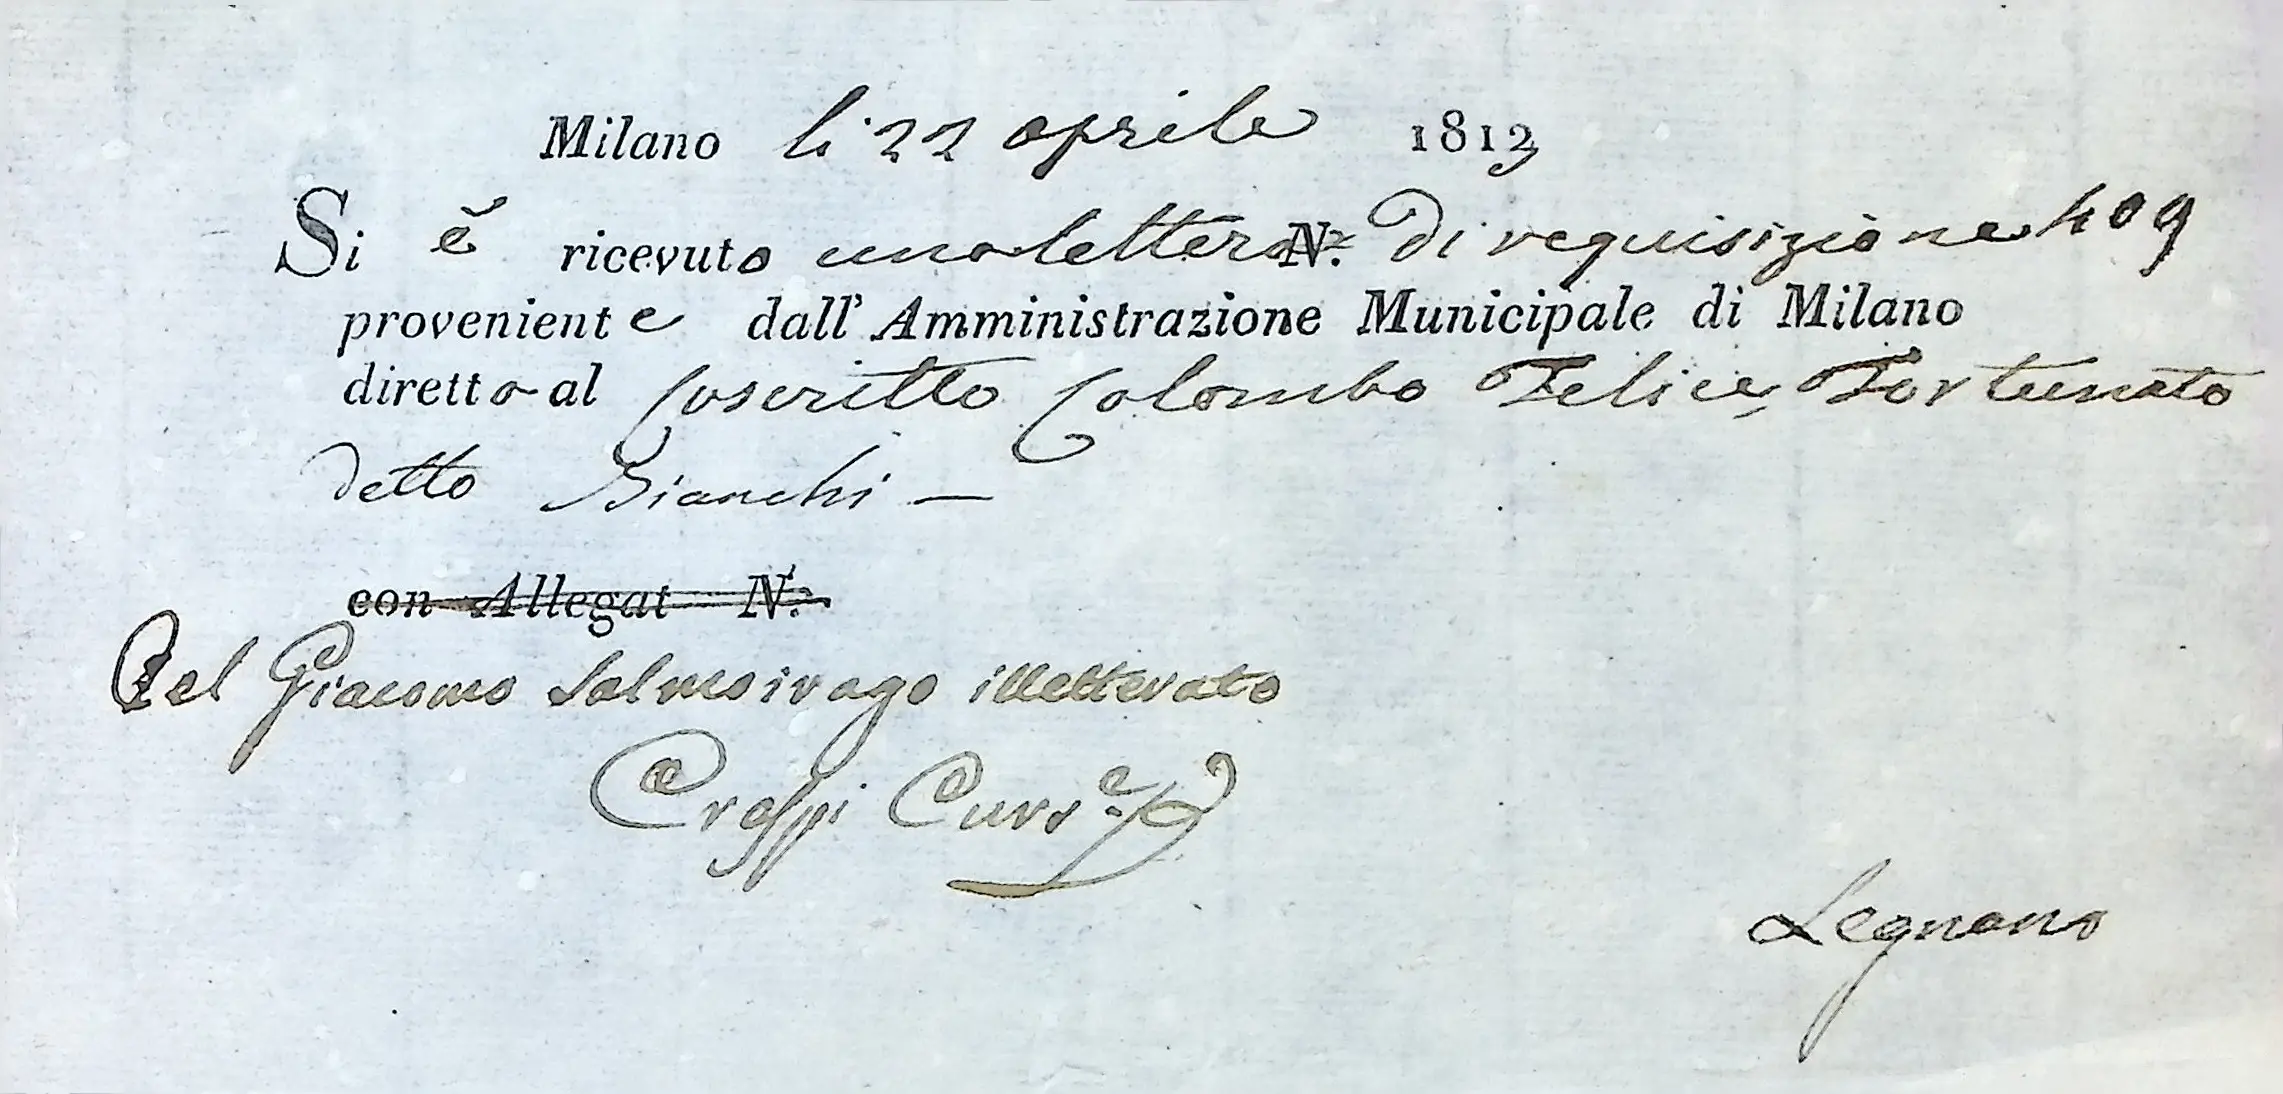 Milano li 22 aprile 1813
Si è ricevuto una lettera N.° di requisizione 409
proveniente dall' Amministrazione Municipale di Milano
diretta al coscritto Colombo Felice Fortunato
detto Bianchi —
con Allegat N.°
Pel Giacomo Salmoirago illetterato
Crespi Curs.e
Legnano